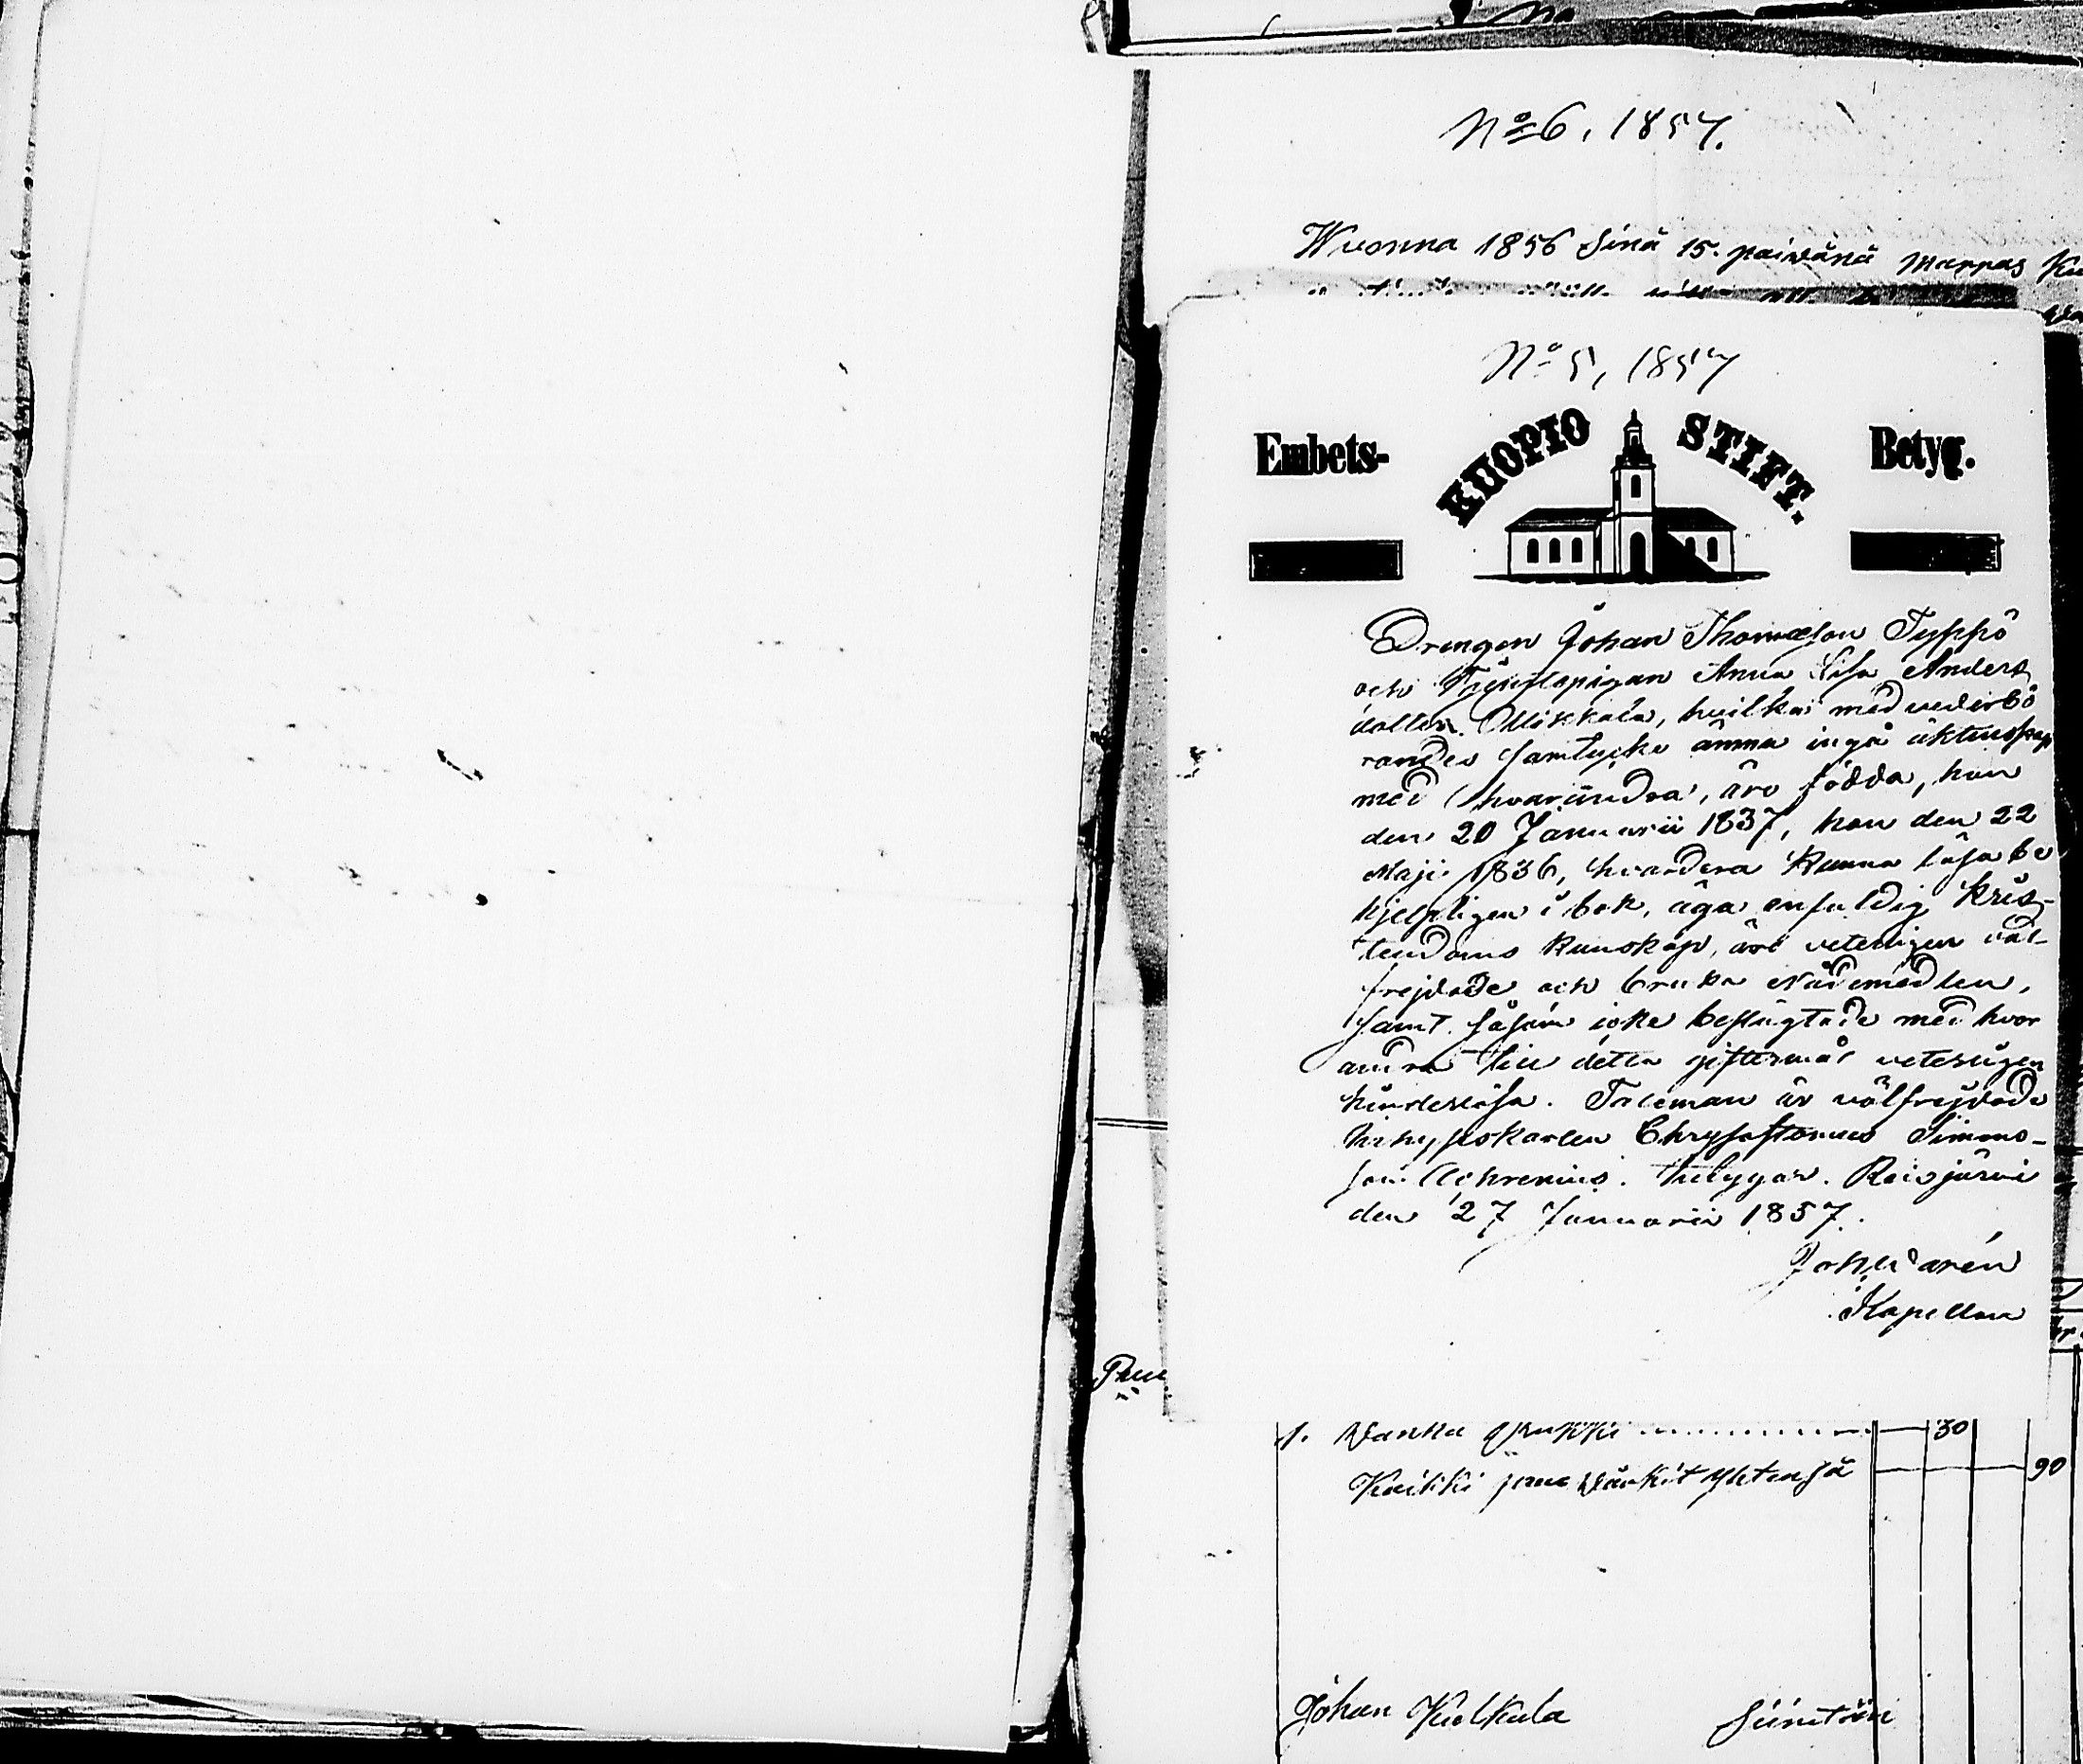 No 6, 1857.
Wuonna 1856 Sinä 15. paiwänä marras Ku
No 5, 1857
Embets- KUOPIO STIFT. Betyg.
Drengen Johan Thomæson Typpö
och Tjenstepigan Anna Lisa Anders
dotter Mikkala, hvilka med vederbö
randes samtycke ämna ingå äktenskap
med hvarandra, äro födda, han
den 20 Januarii 1837, hon den 22
Maji 1836, hvardera kunna läsa be
hjelpligen i bok, äga enfaldig kris-
tendoms kunskap, äro veterligen väl-
frejdade och bruka nådemedlen,
samt såsom icke beslägtade med hvar
andra till detta giftermål veterligen
hinderslösa. Taleman är välfrejdade
Chrysostomus Simons-
son betygar. Reisjärvi
den 27 Januarii 1857.
Kapellan
1. Wanha 30
Kaikki yhtensä 90
Johan